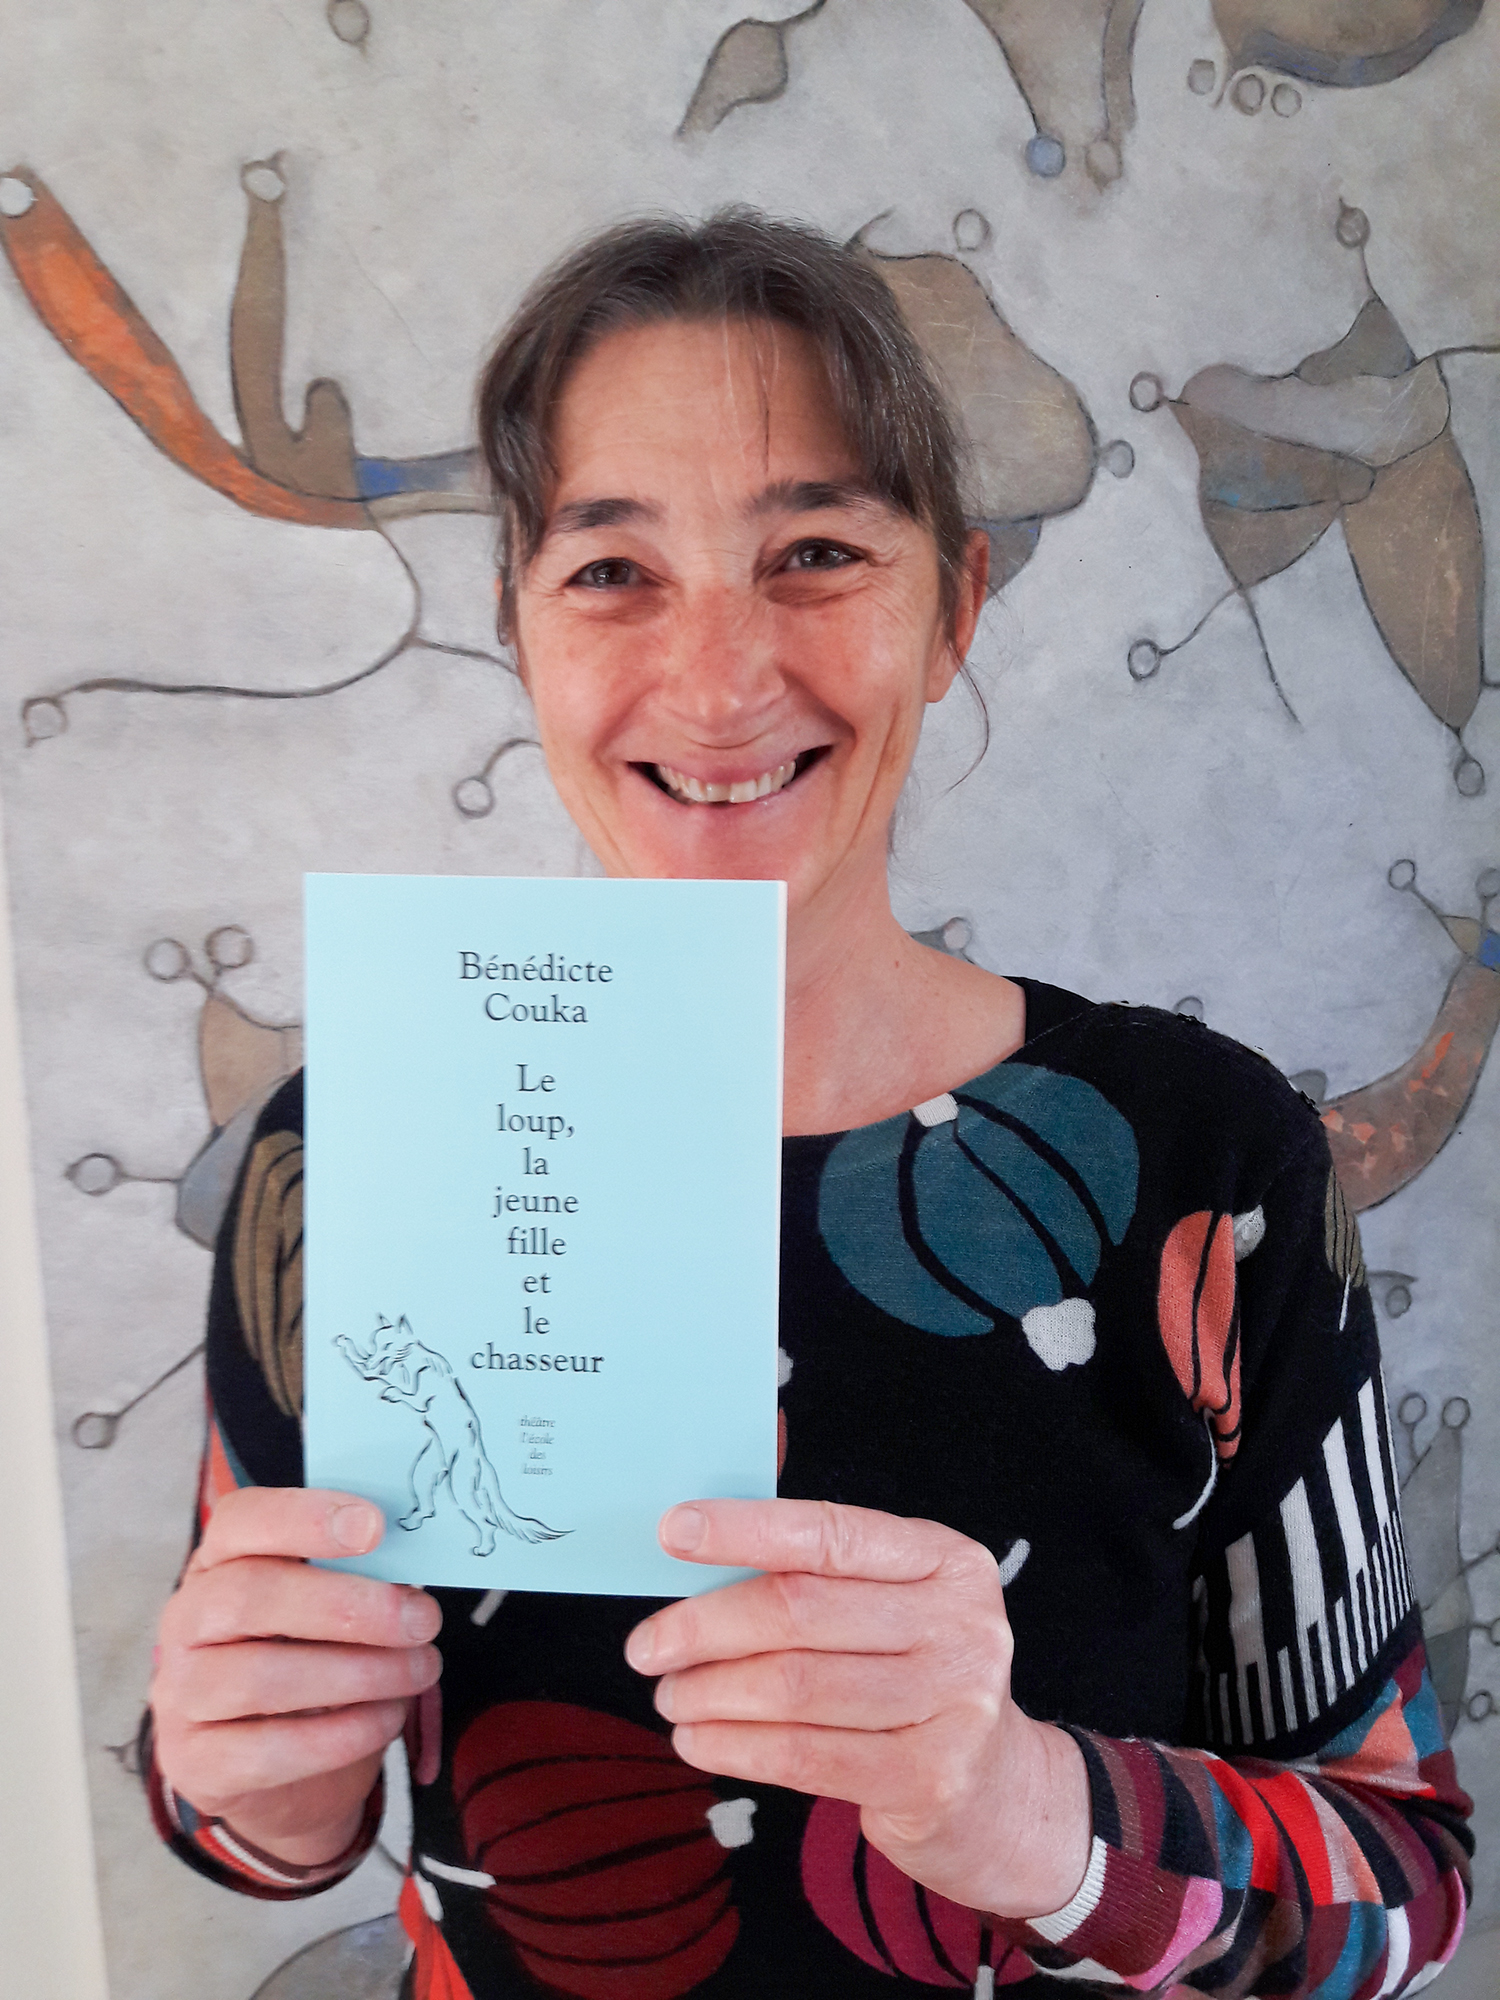 Bénédicte
Couka
Le
loup,
la
jeune
fille
et
le
chasseur
théâtre
l'école
des
loisirs